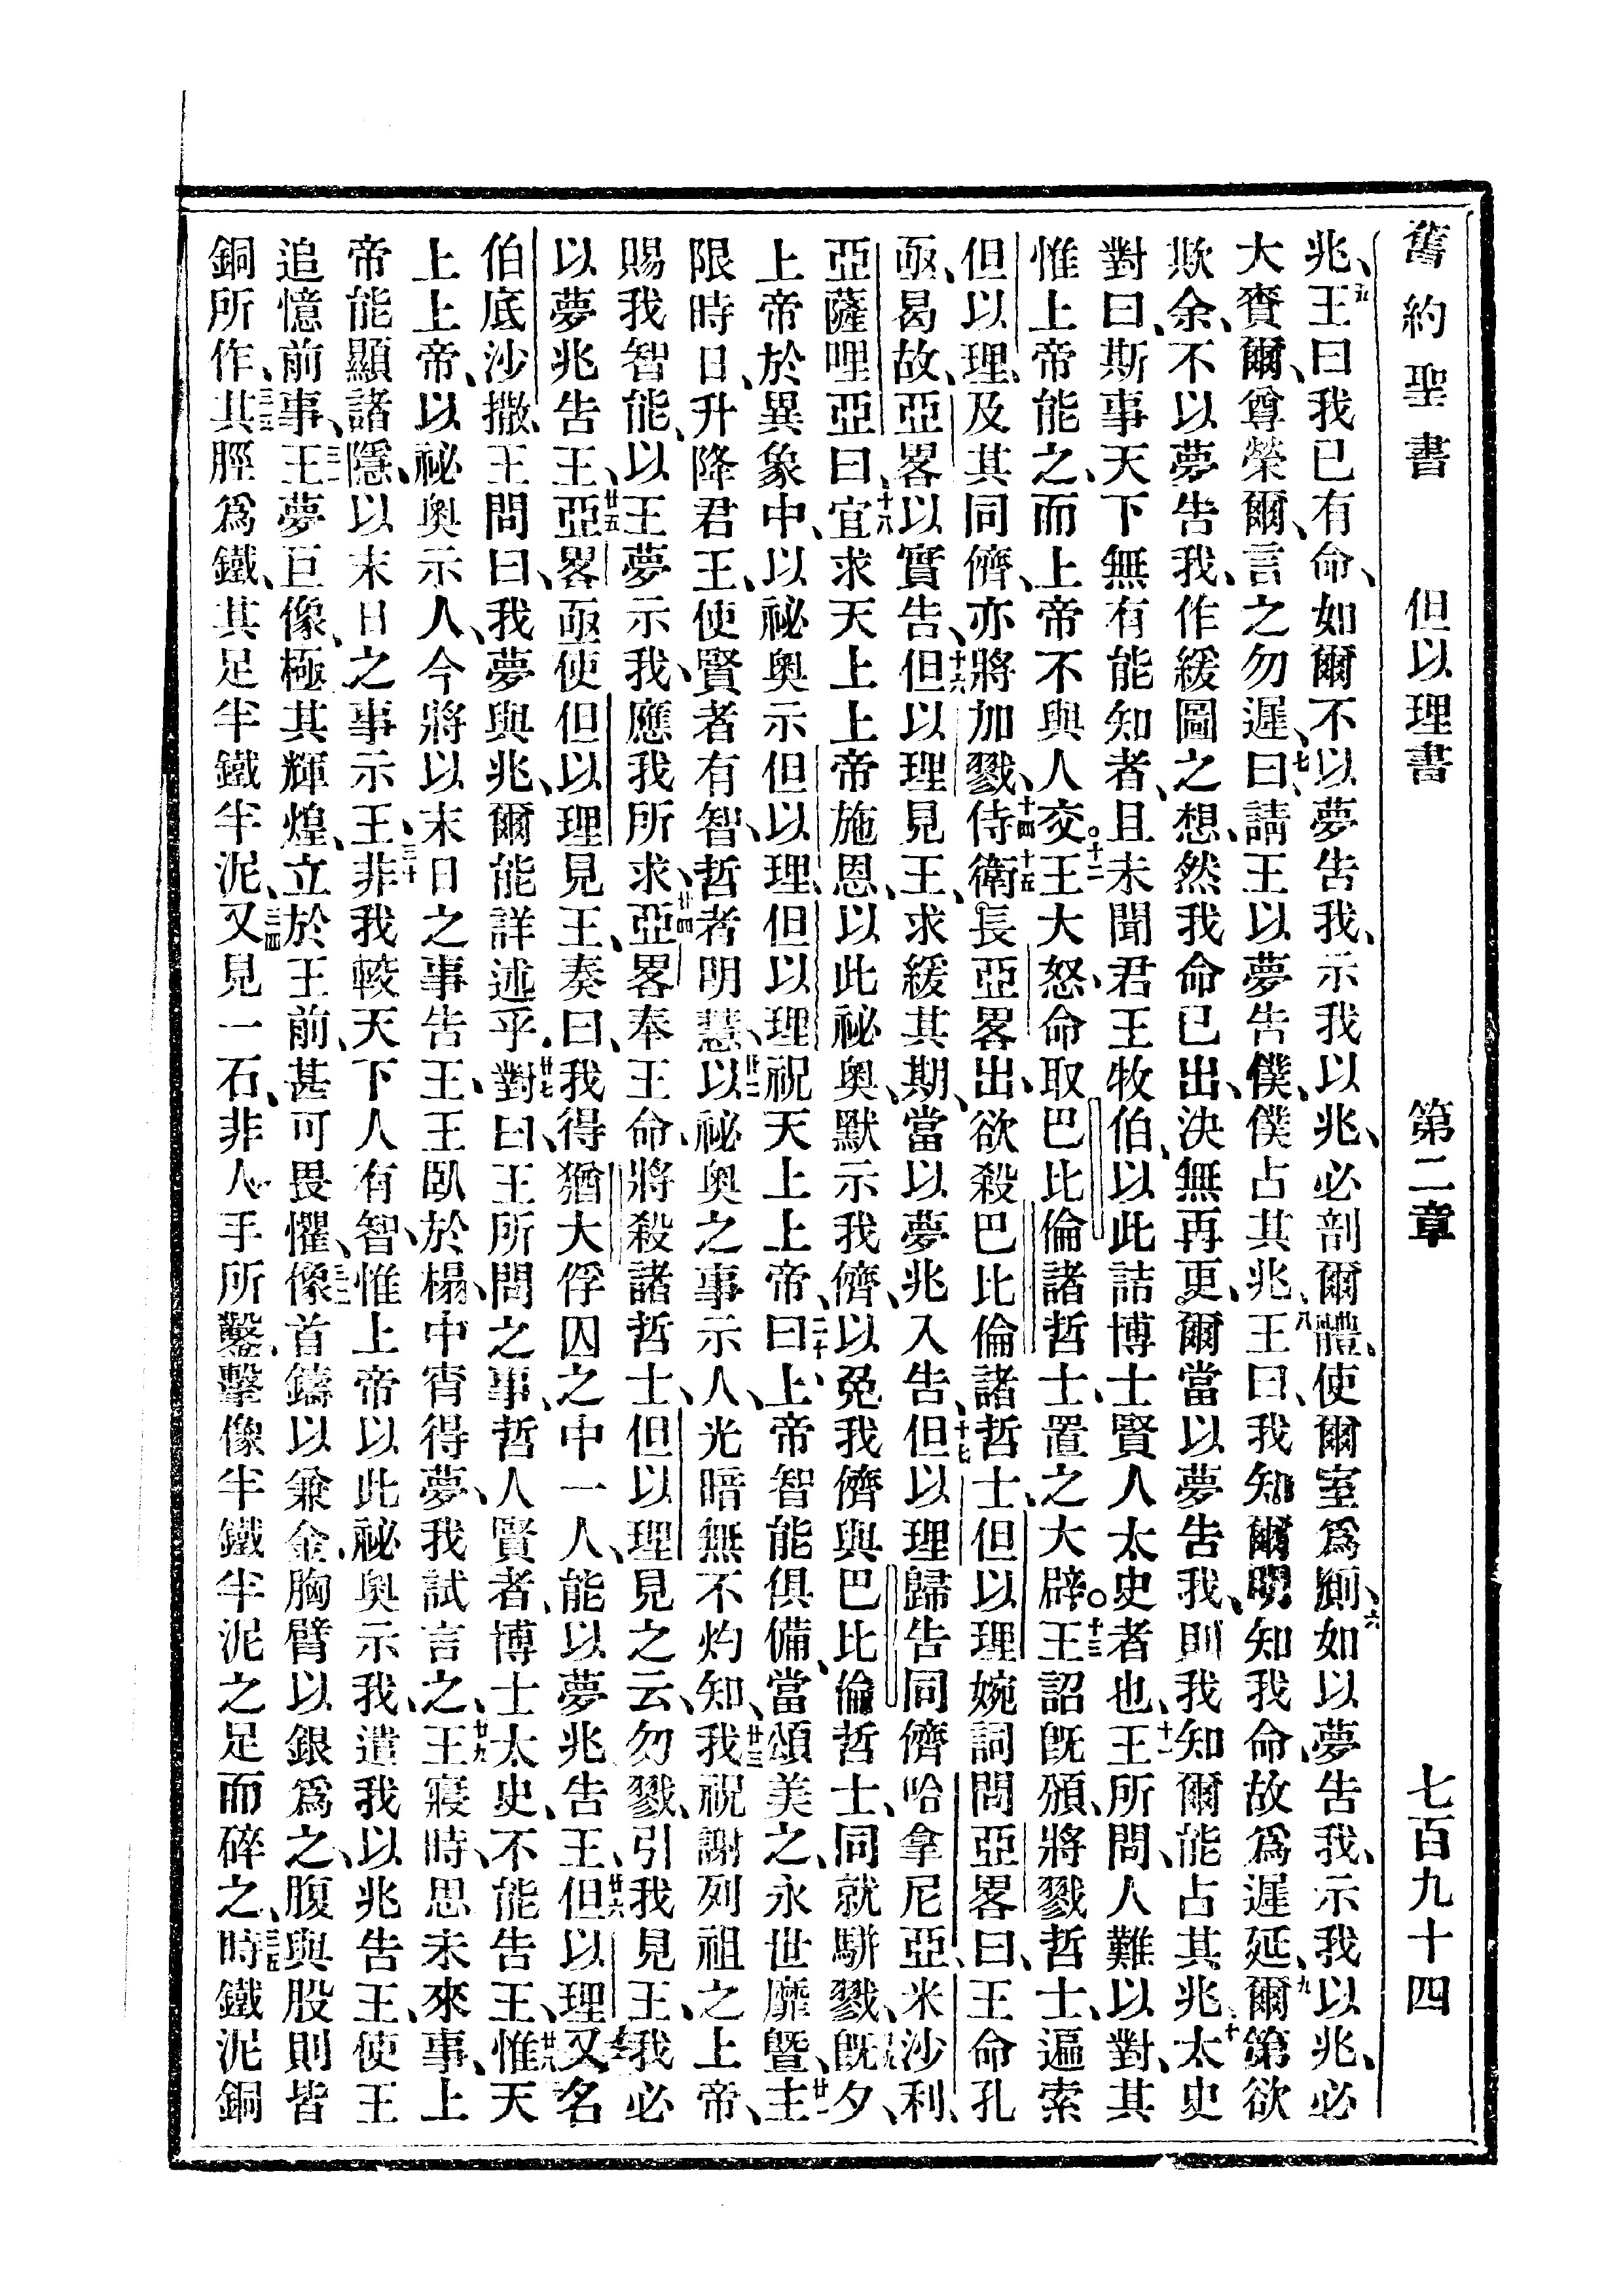 舊約聖書 但以理書 第二章 七百九十四
兆、五王曰我已有命、如爾不以夢告我、示我以兆、必剖爾體、使爾室爲廁、六如以夢告我、示我以兆、必
大賚爾、尊榮爾、言之勿遲、七曰、請王以夢告僕、僕占其兆、八王曰、我知爾明知我命、故爲遲延、九爾第欲
欺余、不以夢告我、作緩圖之想、然我命已出、決無再更、爾當以夢告我、則我知爾能占其兆、十太史
對曰、斯事天下無有能知者、且未聞君王牧伯、以此詰博士賢人太史者也、十一王所問、人難以對、其
惟上帝能之、而上帝不與人交。十二王大怒、命取巴比倫諸哲士、置之大辟。十三王詔旣頒、將戮哲士、遍索
但以理、及其同儕、亦將加戮、十四侍衛十五長亞畧出、欲殺巴比倫諸哲士、但以理婉詞問亞畧曰、王命孔
亟、曷故、亞畧以實告、十六但以理見王、求緩其期、當以夢兆入告、十七但以理歸告同儕哈拿尼亞、米沙利、
亞薩哩亞曰、十八宜求天上上帝施恩、以此祕奧、默示我儕、以免我儕與巴比倫哲士、同就駢戮、十九旣夕、
上帝於異象中、以祕奧示但以理、但以理祝天上上帝、二十曰、上帝智能俱備、當頌美之、永世靡曁、廿一主
限時日、升降君王、使賢者有智、哲者明慧、廿二以祕奧之事示人、光暗無不灼知、廿三我祝謝列祖之上帝、
賜我智能、以王夢示我、應我所求、廿四亞畧奉王命、將殺諸哲士、但以理見之云、勿戮、引我見王、我必
以夢兆告王、廿五亞畧亟使但以理見王、奏曰、我得猶大俘囚之中一人、能以夢兆告王、廿六但以理又名
伯底沙撒、王問曰、我夢與兆、爾能詳述乎、廿七對曰、王所問之事、哲人賢者、博士太史、不能告王、廿八惟天
上上帝、以祕奧示人、今將以末日之事告王、王臥於榻、中宵得夢、我試言之、廿九王寢時、思未來事、上
帝能顯諸隱、以末日之事示王、三十非我較天下人有智、惟上帝以此祕奧示我、遣我以兆告王、使王
追憶前事、三一王夢巨像、極其輝煌、立於王前、甚可畏懼、三二像首鑄以兼金、胸臂以銀爲之、腹與股則皆
銅所作、三三其脛爲鐵、其足半鐵半泥、三四又見一石、非人手所鑿、擊像半鐵半泥之足而碎之、三五時鐵泥銅